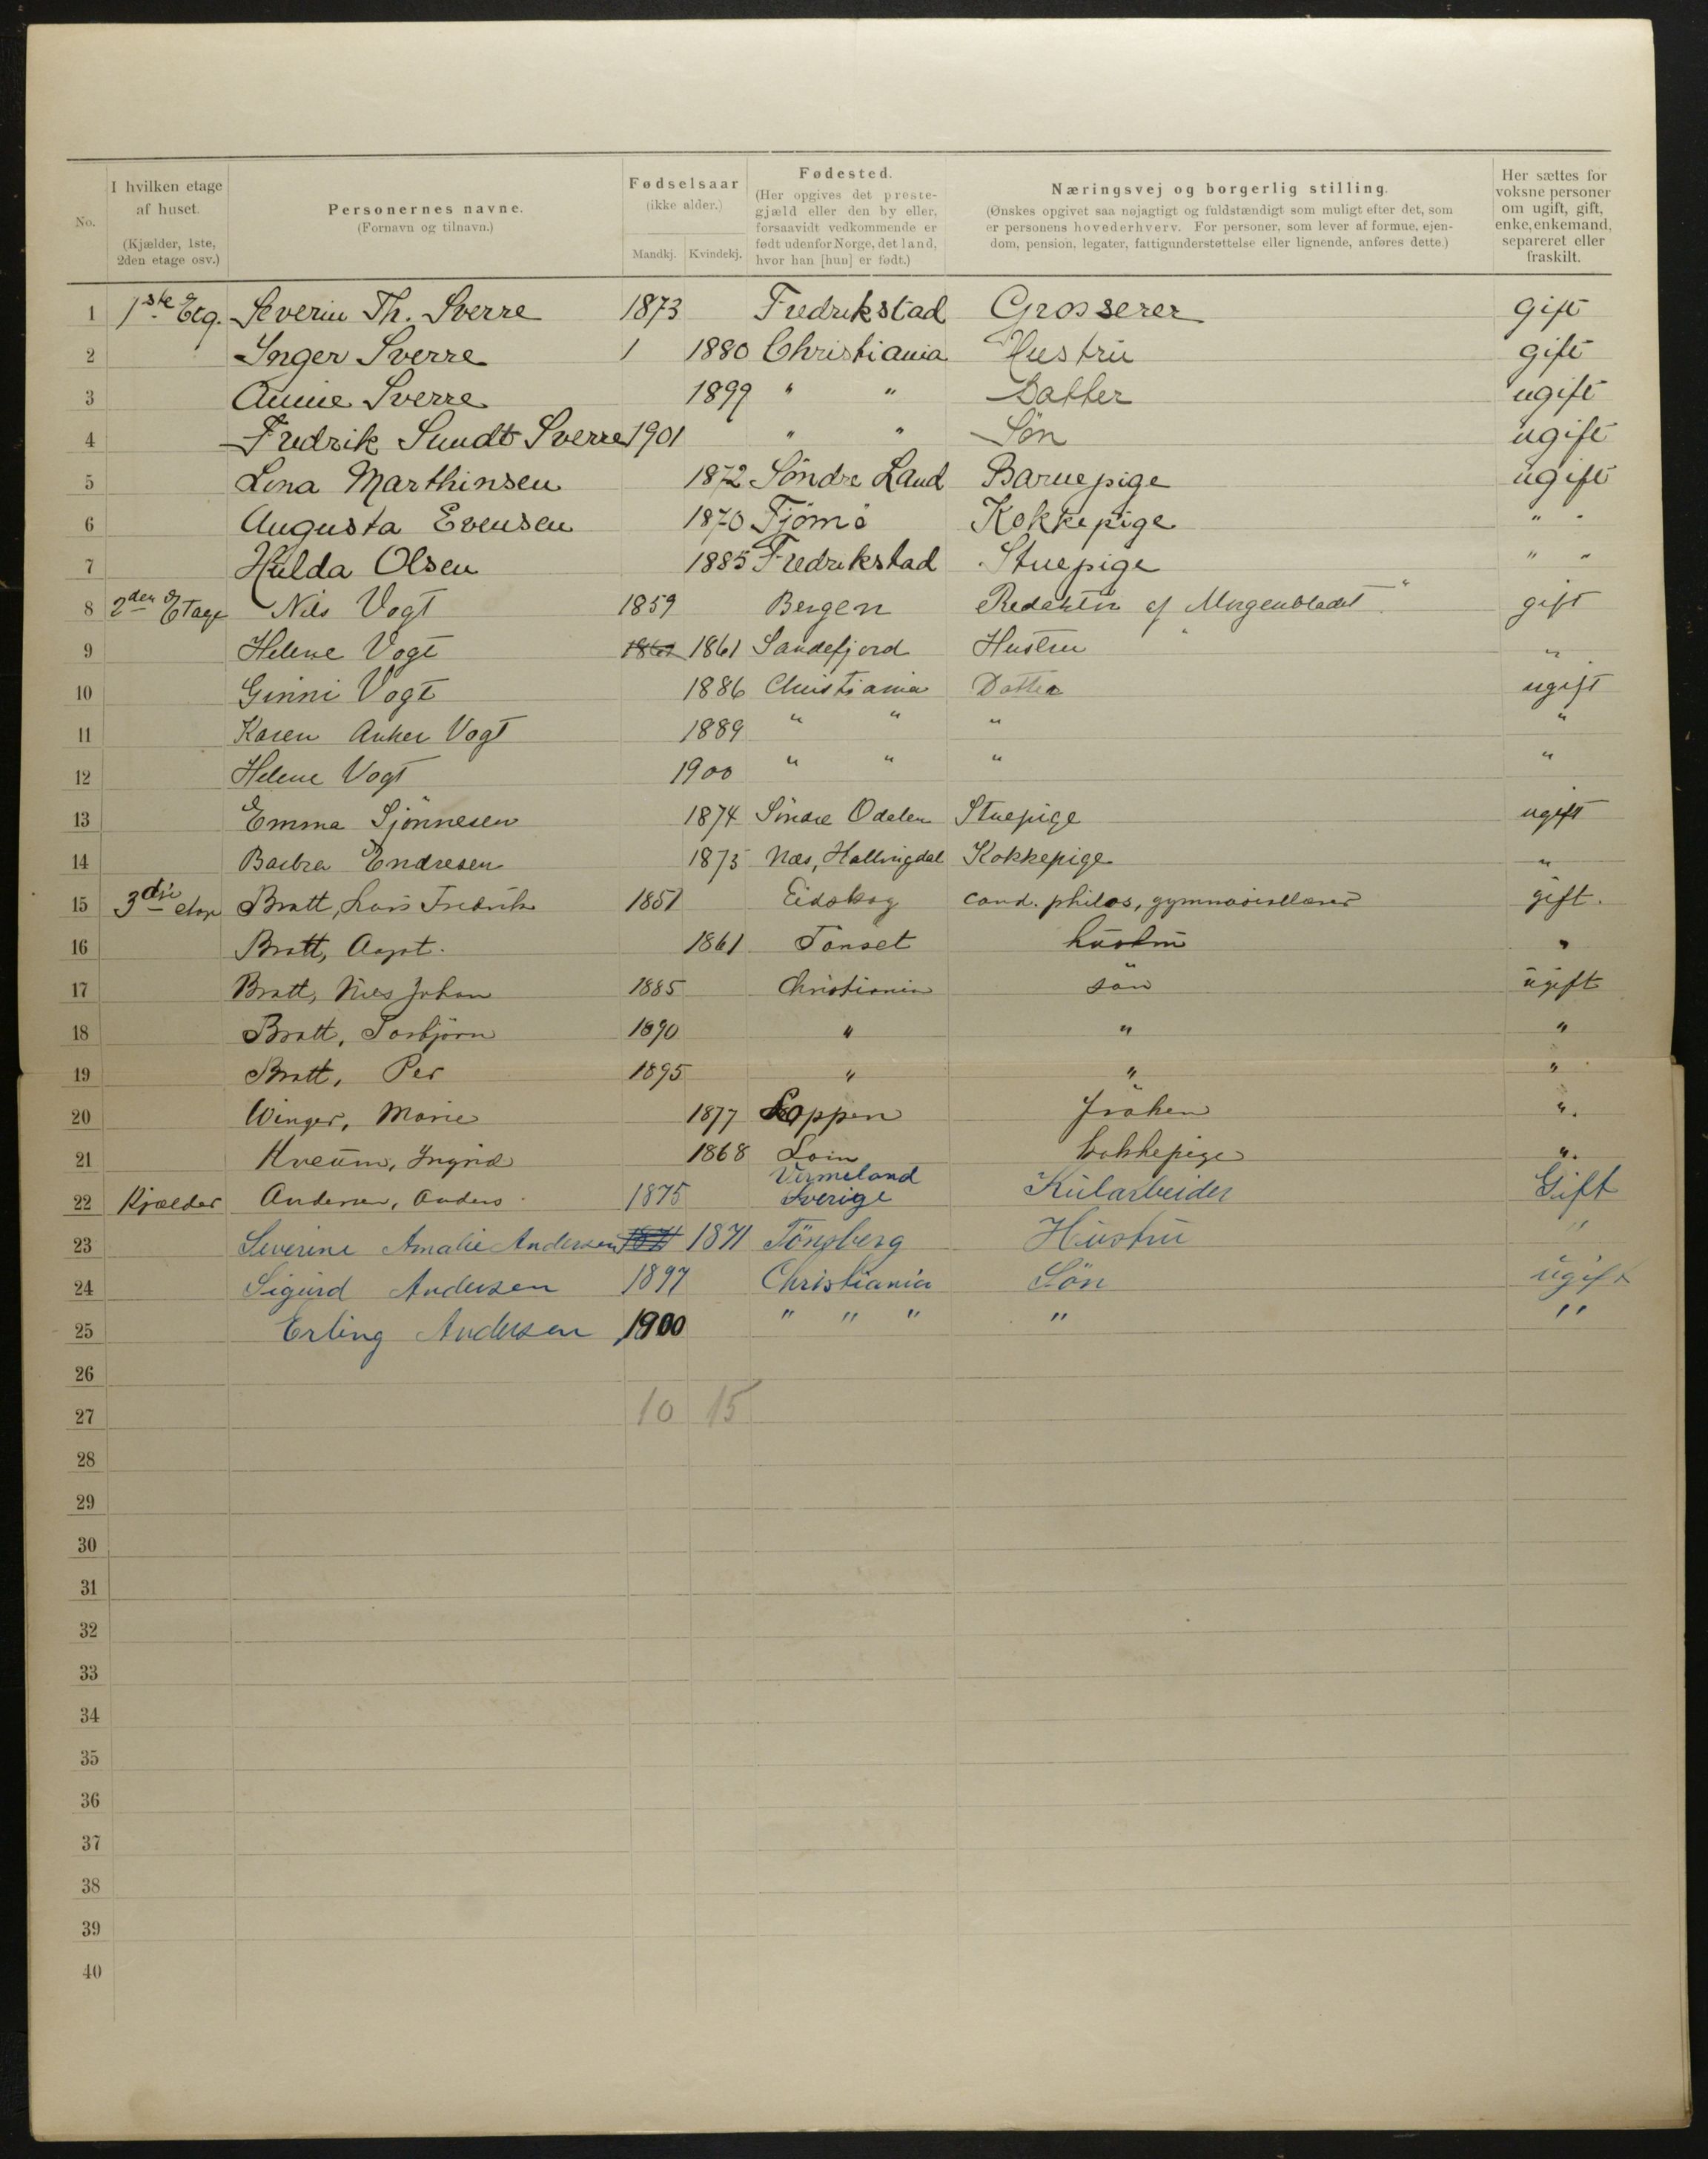 No.
I hvilken etage af huset.
(Kjælder, 1ste, 2den etage osv.)
Personernes navne.
(Fornavn og tilnavn.)
Fødselsaar
(ikke alder.)
Mandkj. Kvindekj.
Fødested.
(Her opgives det prestegjæld eller den by eller, forsaavidt vedkommende er født udenfor Norge, det land, hvor han [hun] er født.)
Næringsvej og borgerlig stilling.
(Ønskes opgivet saa nøjagtigt og fuldstændigt som muligt efter det, som er personens hovederhverv. For personer, som lever af formue, ejendom, pension, legater, fattigunderstøttelse eller lignende, anføres dette.)
Her sættes for voksne personer om ugift, gift, enke, enkemand, separeret eller fraskilt.
1 1ste Etg. Severin Th. Sverre 1873 Fredrikstad Grosserer gift
2 Inger Sverre 1 1880 Christiania Hustru gift
3 Annie Sverre 1899 " " Datter ugift
4 Fredrik Sundt Sverre 1901 " " Søn ugift
5 Lina Marthinsen 1872 Söndre Land Barnepige ugift
6 Augusta Evensen 1870 Tjömö Kokkepige " "
7 Hulda Olsen 1885 Fredrikstad Stuepige " "
8 2den Etage Nils Vogt 1859 Bergen Redaktör af "Morgenbladet" gift
9 Helene Vogt 1861 1861 Sandefjord Hustru "
10 Ginni Vogt 1886 Christiania Datter ugift
11 Karen Anker Vogt 1889 " " " "
12 Helene Vogt 1900 " " " "
13 Emma Sjönnesen 1874 Söndre Odalen Stuepige ugift
14 Barbra Endresen 1875 Næs, Hallingdal Kokkepige "
15 3die etage Bratt, Lars Fredrik 1851 Eidskog cand. philos, gymnasiellærer gift.
16 Bratt, Aagot. 1861 Tönset hustru "
17 Bratt, Nils Johan 1885 Christiania sön ugift
18 Bratt, Torbjörn 1890 " " "
19 Bratt, Per 1895 " " "
20 Winger, Marie 1877 Loppen fröken ".
21 Kveum, Ingrid 1868 Lom kokkepige ".
22 Kjælder Andersen, Anders. 1875 Vermeland Sverige Kularbeider Gift
23 Severine Amalie Andersen 1871 1871 Tönsberg Hustru "
24 Sigurd Andersen 1897 Christiania Sön ugift
25 Erling Andersen 1900 " " " " "
26
27 10 15
28
29
30
31
32
33
34
35
36
37
38
39
40